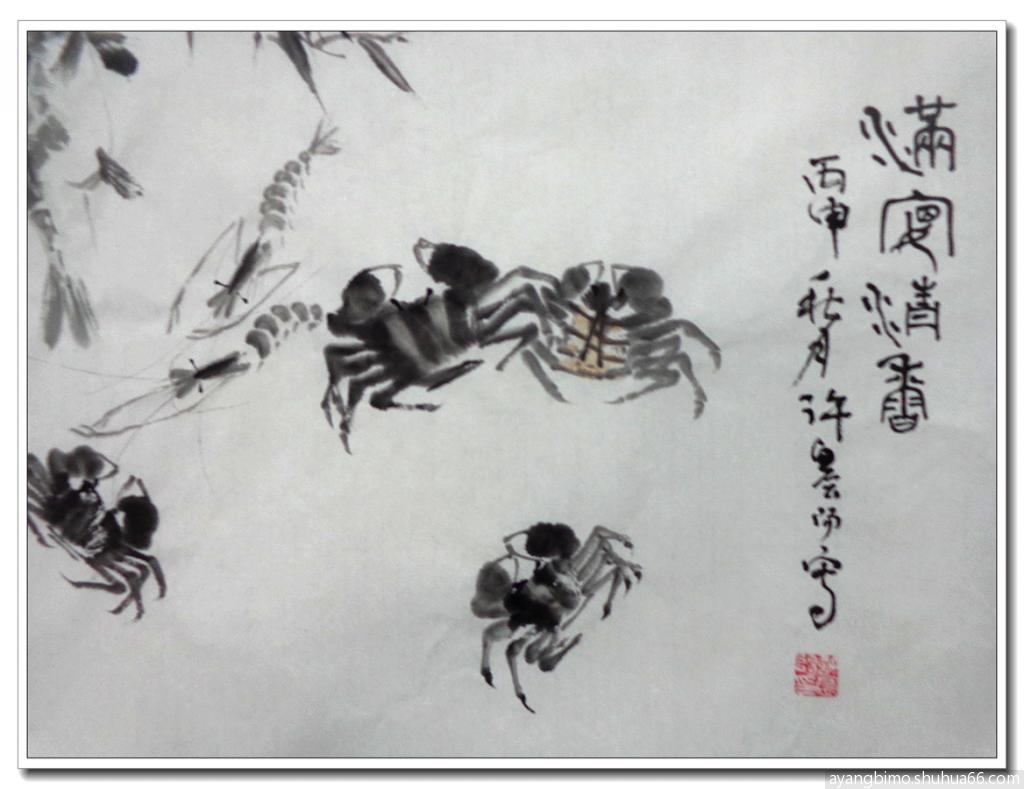 滿宴清香
丙申秋月许写
ayangbimo.shuhua66.com